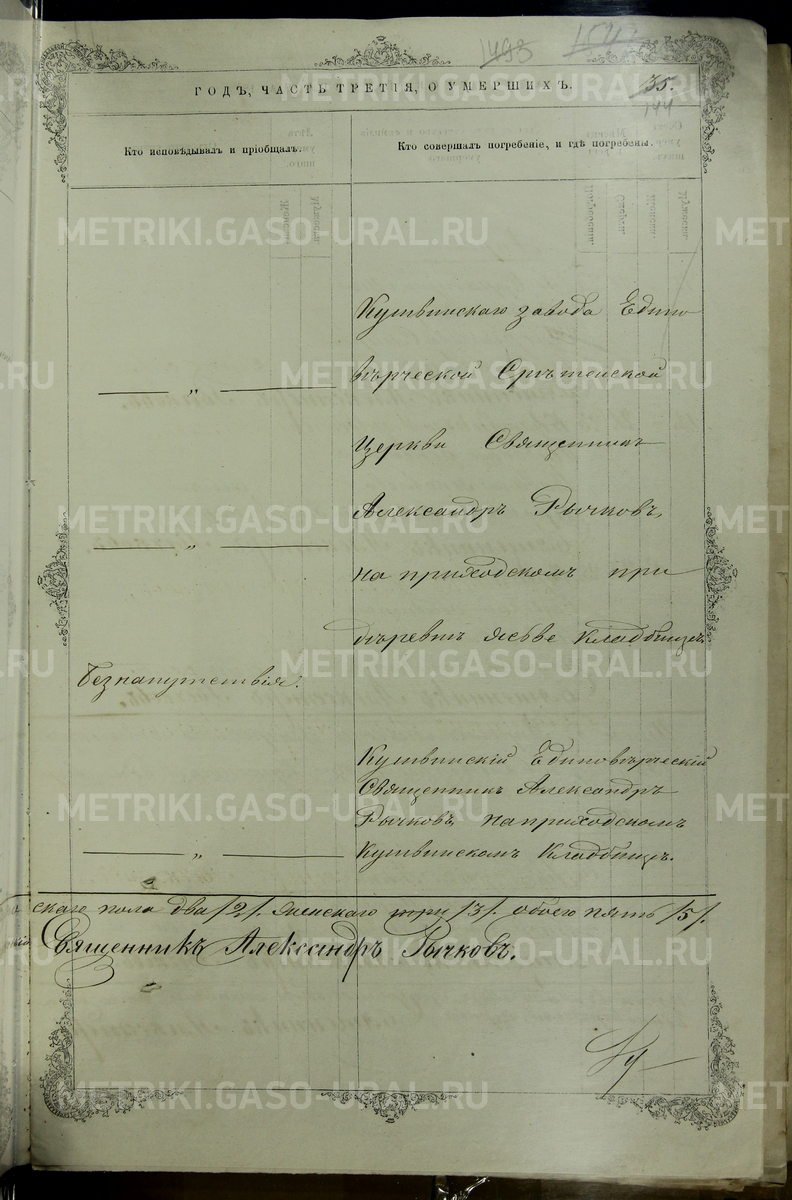 1493
154
35.
144
ГОДЪ, ЧАСТЬ ТРЕТІЯ, О УМЕРШИХЪ.
Кто исповѣдывалъ и пріобщалъ.
Кто совершалъ погребеніе, и гдѣ погребены.
METRIKI.GASO-URAL.RU
Кушвинскаго завода Едино
вѣрческой Срѣтенской
— „ —
Церкви Священникъ
Александръ Рычковъ,
— „ —
на приходскомъ при
дѣревнѣ Ясьве кладбищѣ.
Безнапутствія.
Кушвинскій Единовѣрческій
Священникъ Александръ
Рычковъ, на приходскомъ
Кушвинскомъ Кладбищѣ.
— „ —
скаго пола два /2/. женскаго три /3/. обоего пять /5/.
Священникъ Александръ Рычковъ.